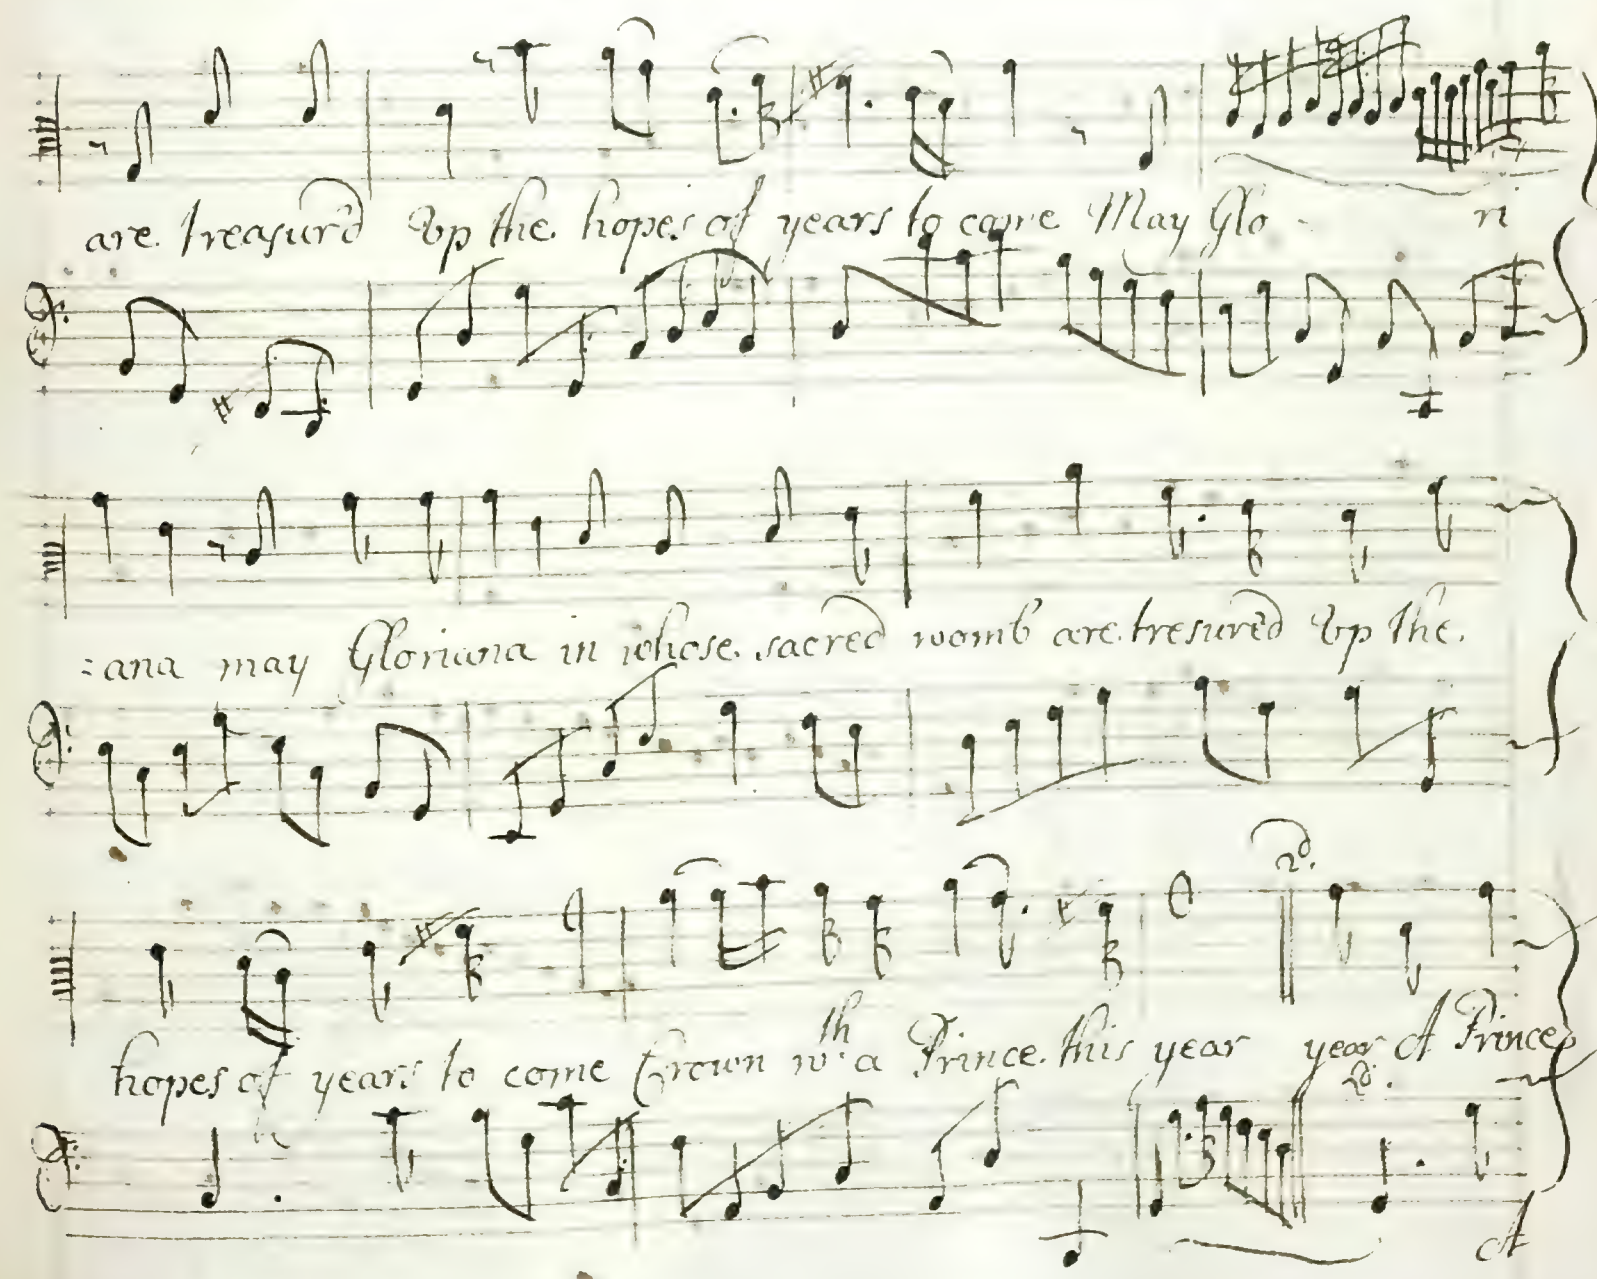 are treasur'd Vp the hopes of years to come May Glo - ri
:ana may Gloriana in whose sacred womb are tresured Vp the
2d.
hopes of years to come Crown wth a Prince this year year A Prince
2d.
A